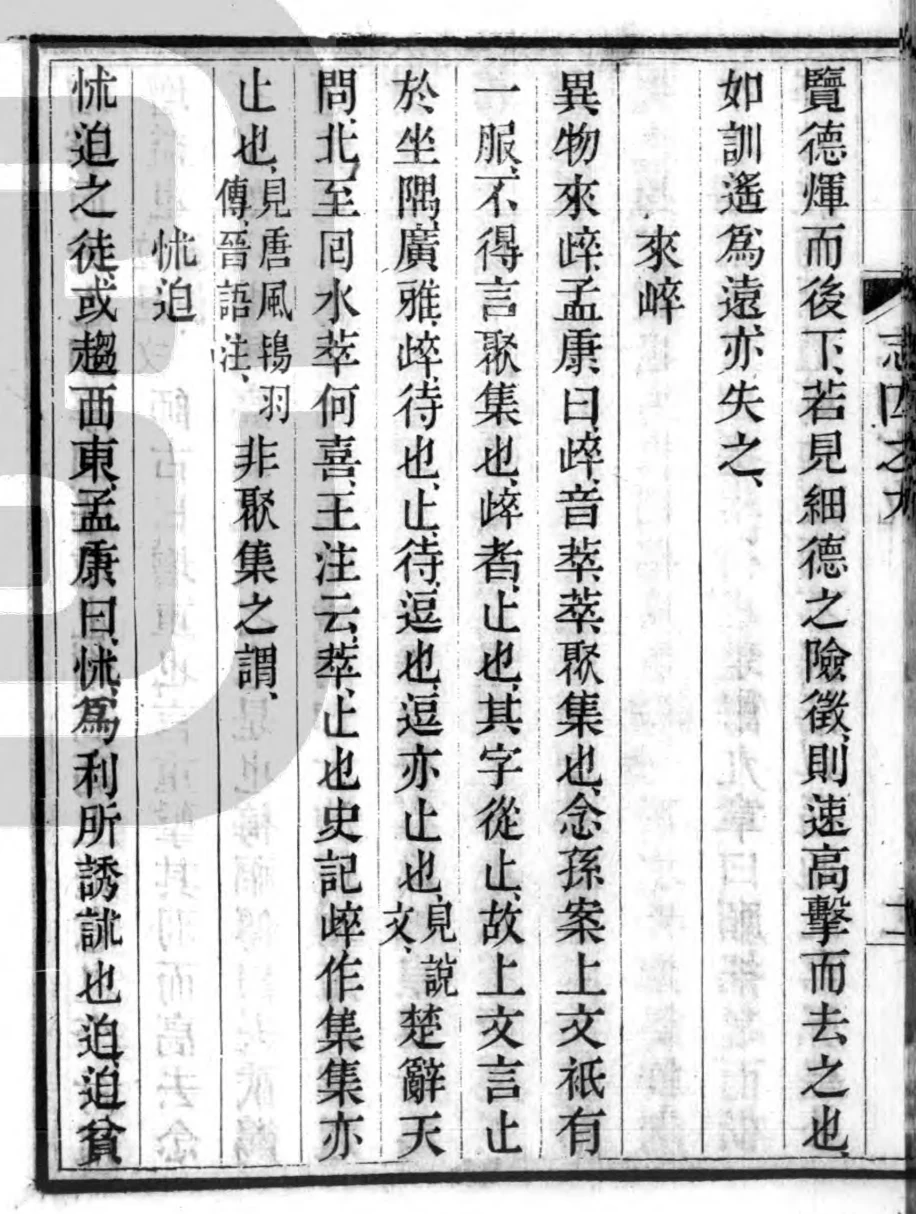 志四之九
覽德煇而後下、若見細德之險徵、則速高擊而去之也、
如訓遙爲遠亦失之、
來㱖
異物來㱖、孟康曰、㱖、音萃、萃、聚集也、念孫案上文祇有
一服、不得言聚集也、㱖者、止也、其字從止、故上文言止
於坐隅、廣雅、㱖、待也、止、待、逗也、逗亦止也、見說文、楚辭天
問、北至回水、萃何喜、王注云、萃、止也史記㱖作集集亦
止也、見唐風鴇羽傳、晉語注、非聚集之謂、
怵迫
怵迫之徒、或趨西東、孟康曰、怵、爲利所誘訹也迫、迫貧